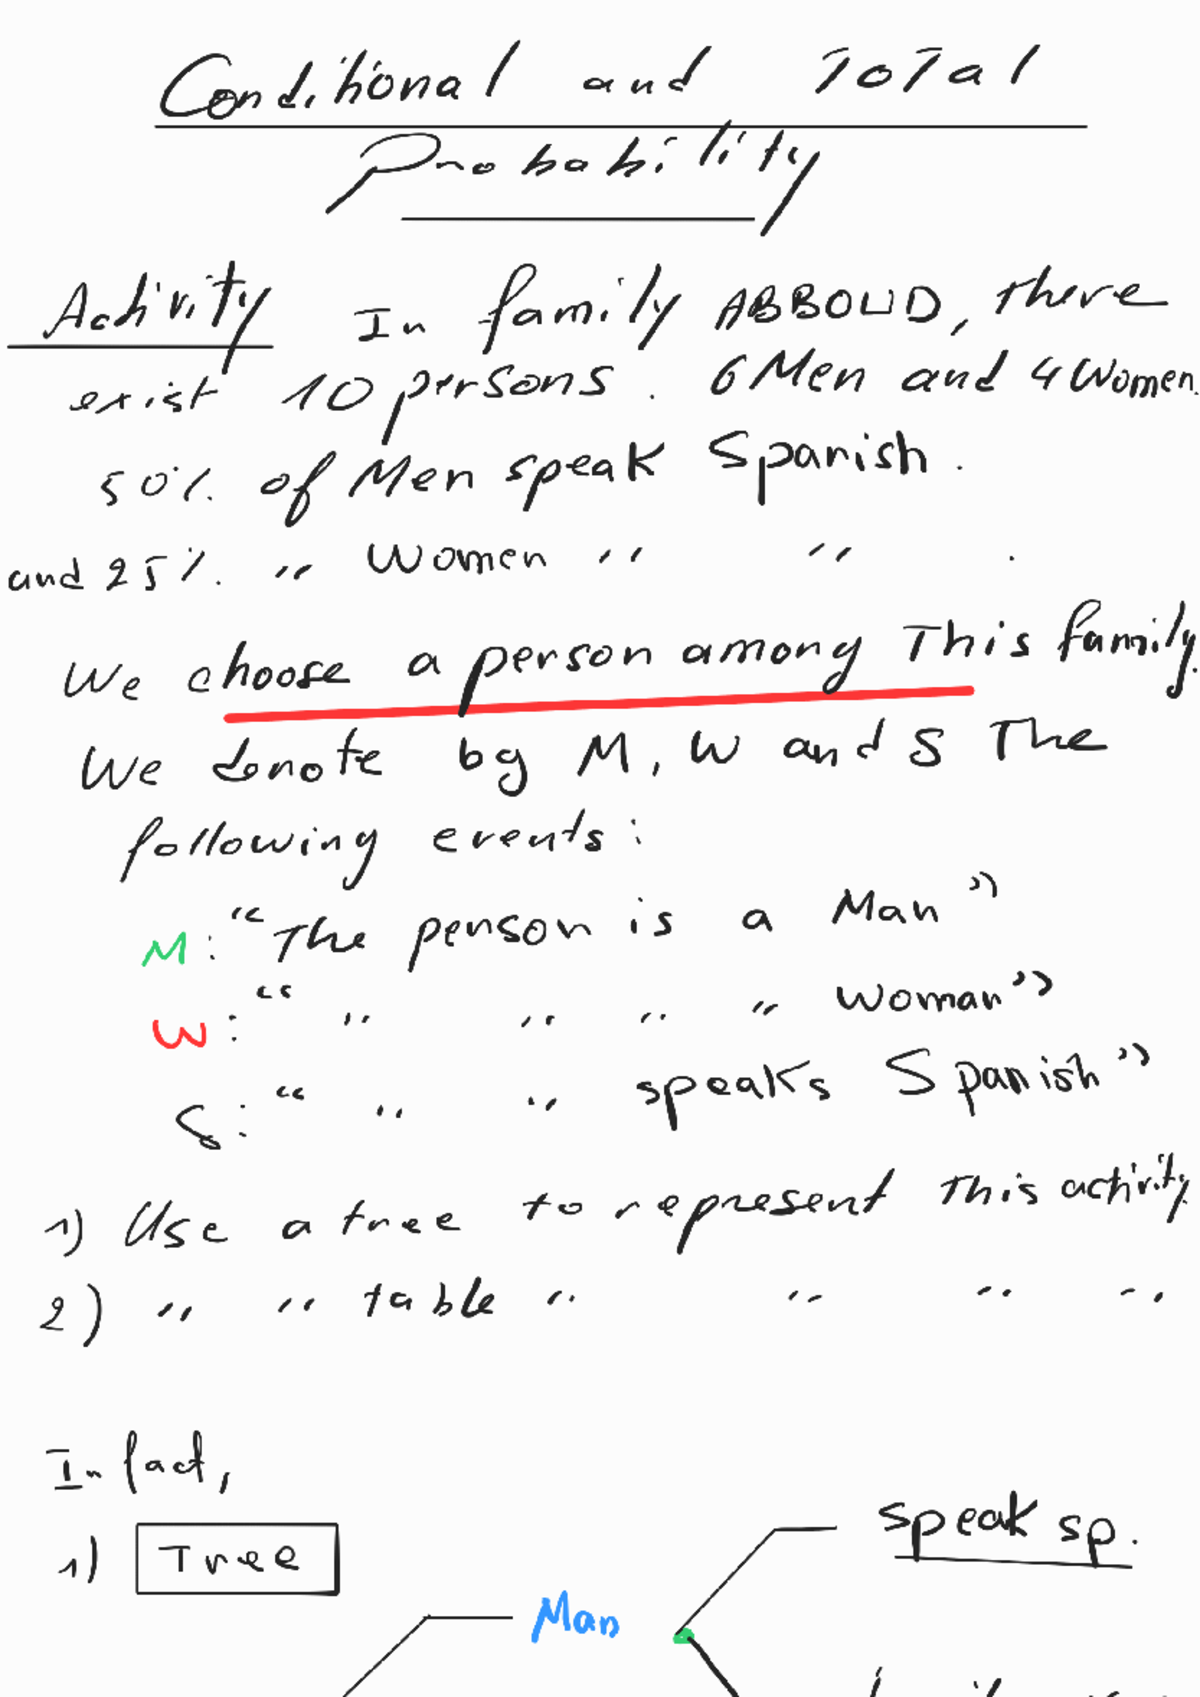 Conditional and Total
Probability
Activity In family ABBOUD, there
exist 10 persons. 6 Men and 4 Women.
50% of Men speak Spanish.
and 25% " Women " " .
We choose a person among This family.
We denote by M, W and S The
following events:
M: "The person is a Man"
W: " " " " " Woman"
S: " " " speaks Spanish"
1) Use a tree to represent This activity.
2) " " table " " " " .
In fact,
1) Tree
speak sp.
Man